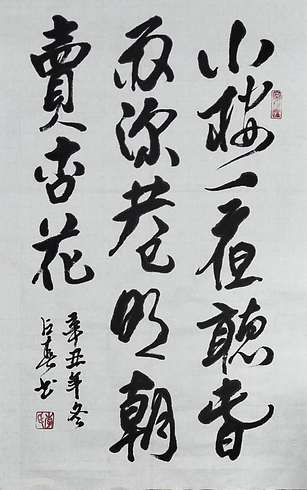 小樓一夜聽春
雨深巷明朝
賣杏花
辛丑年冬
占春书